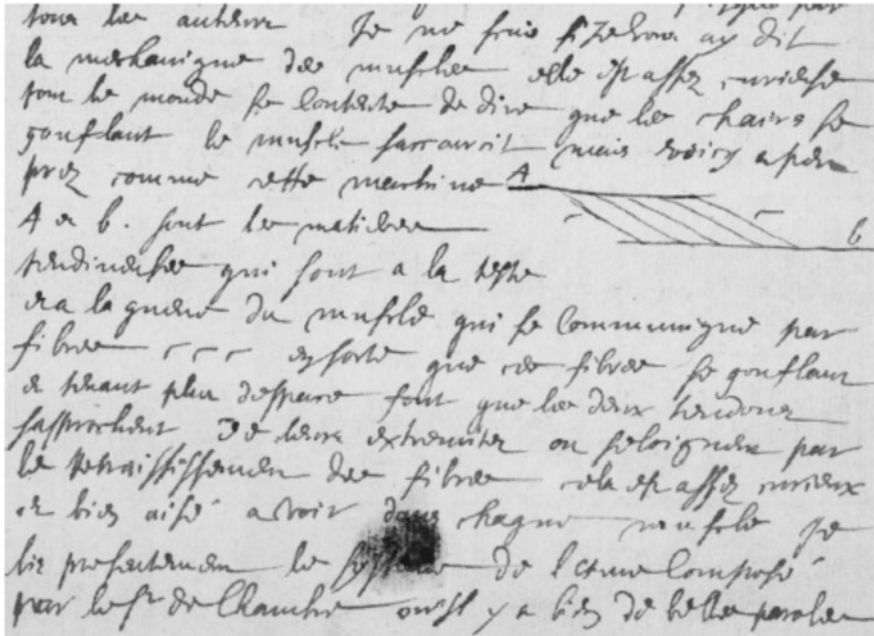 tous les auteurs Je ne scai si Je vous ay dit
la mechanique des muscles elle est assez curieuse
tout le monde se contente de dire que les chairs se
gonflant le muscle saccourcit mais voicy a peu
prez comme cette machine A
A et b. sont les matieres b
tendineuses qui sont a la teste
et a la queue du muscle qui se communique par
fibres c c c ensorte que ces fibres se gonflant
et tenant plus despace font que les deux tendons
saprochent de leurs extremitez ou seloignent par
le retraississement des fibres cela est assez curieux
et bien aisé a voir dans chaque muscle Je
lis presentement le systeme de lame composé
par le Sr de la Chambre ou il y a bien de belles paroles